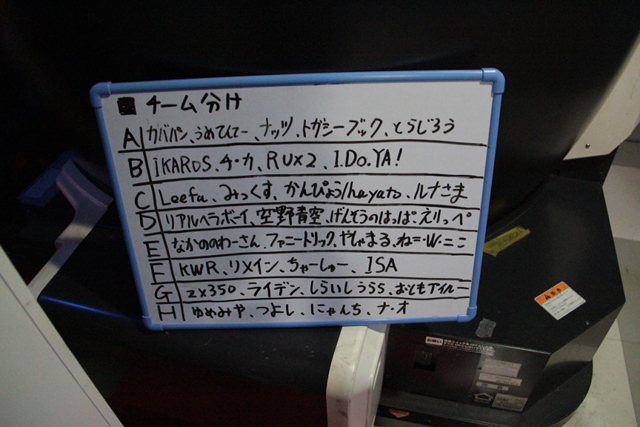 ■ チーム分け
A カバパン、うめてんてー、ナッツ、トガシーブック、とらじろう
B IKAROS、チ・カ、RU×2、I.Do.YA!
C Leefa、みっくす、かんぴょう/hayato、ルナさま
D リアルヘラボーイ、空野青空、げんそうのはっぱ、えりっぺ
E なかののわーさん、ファニートリック、やしゃまる、ねこ・W・ここ
F KWR、リメイン、ちゃーしゅー、ISA
G ZX350、ライデン、しらいしうらら、おともアイルー
H ゆめみや、つよし、にゃんち、ナ・オ